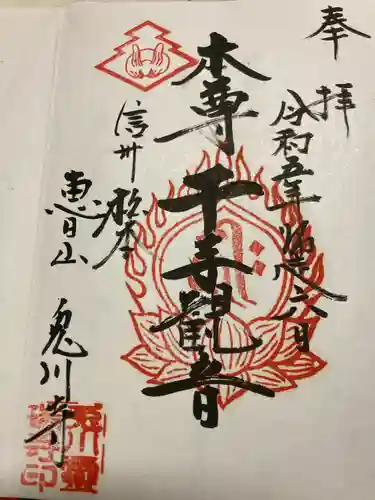 奉
拝
令和五年 師走六日
本尊
千手観音
信州 松本
恵日山
兎川寺